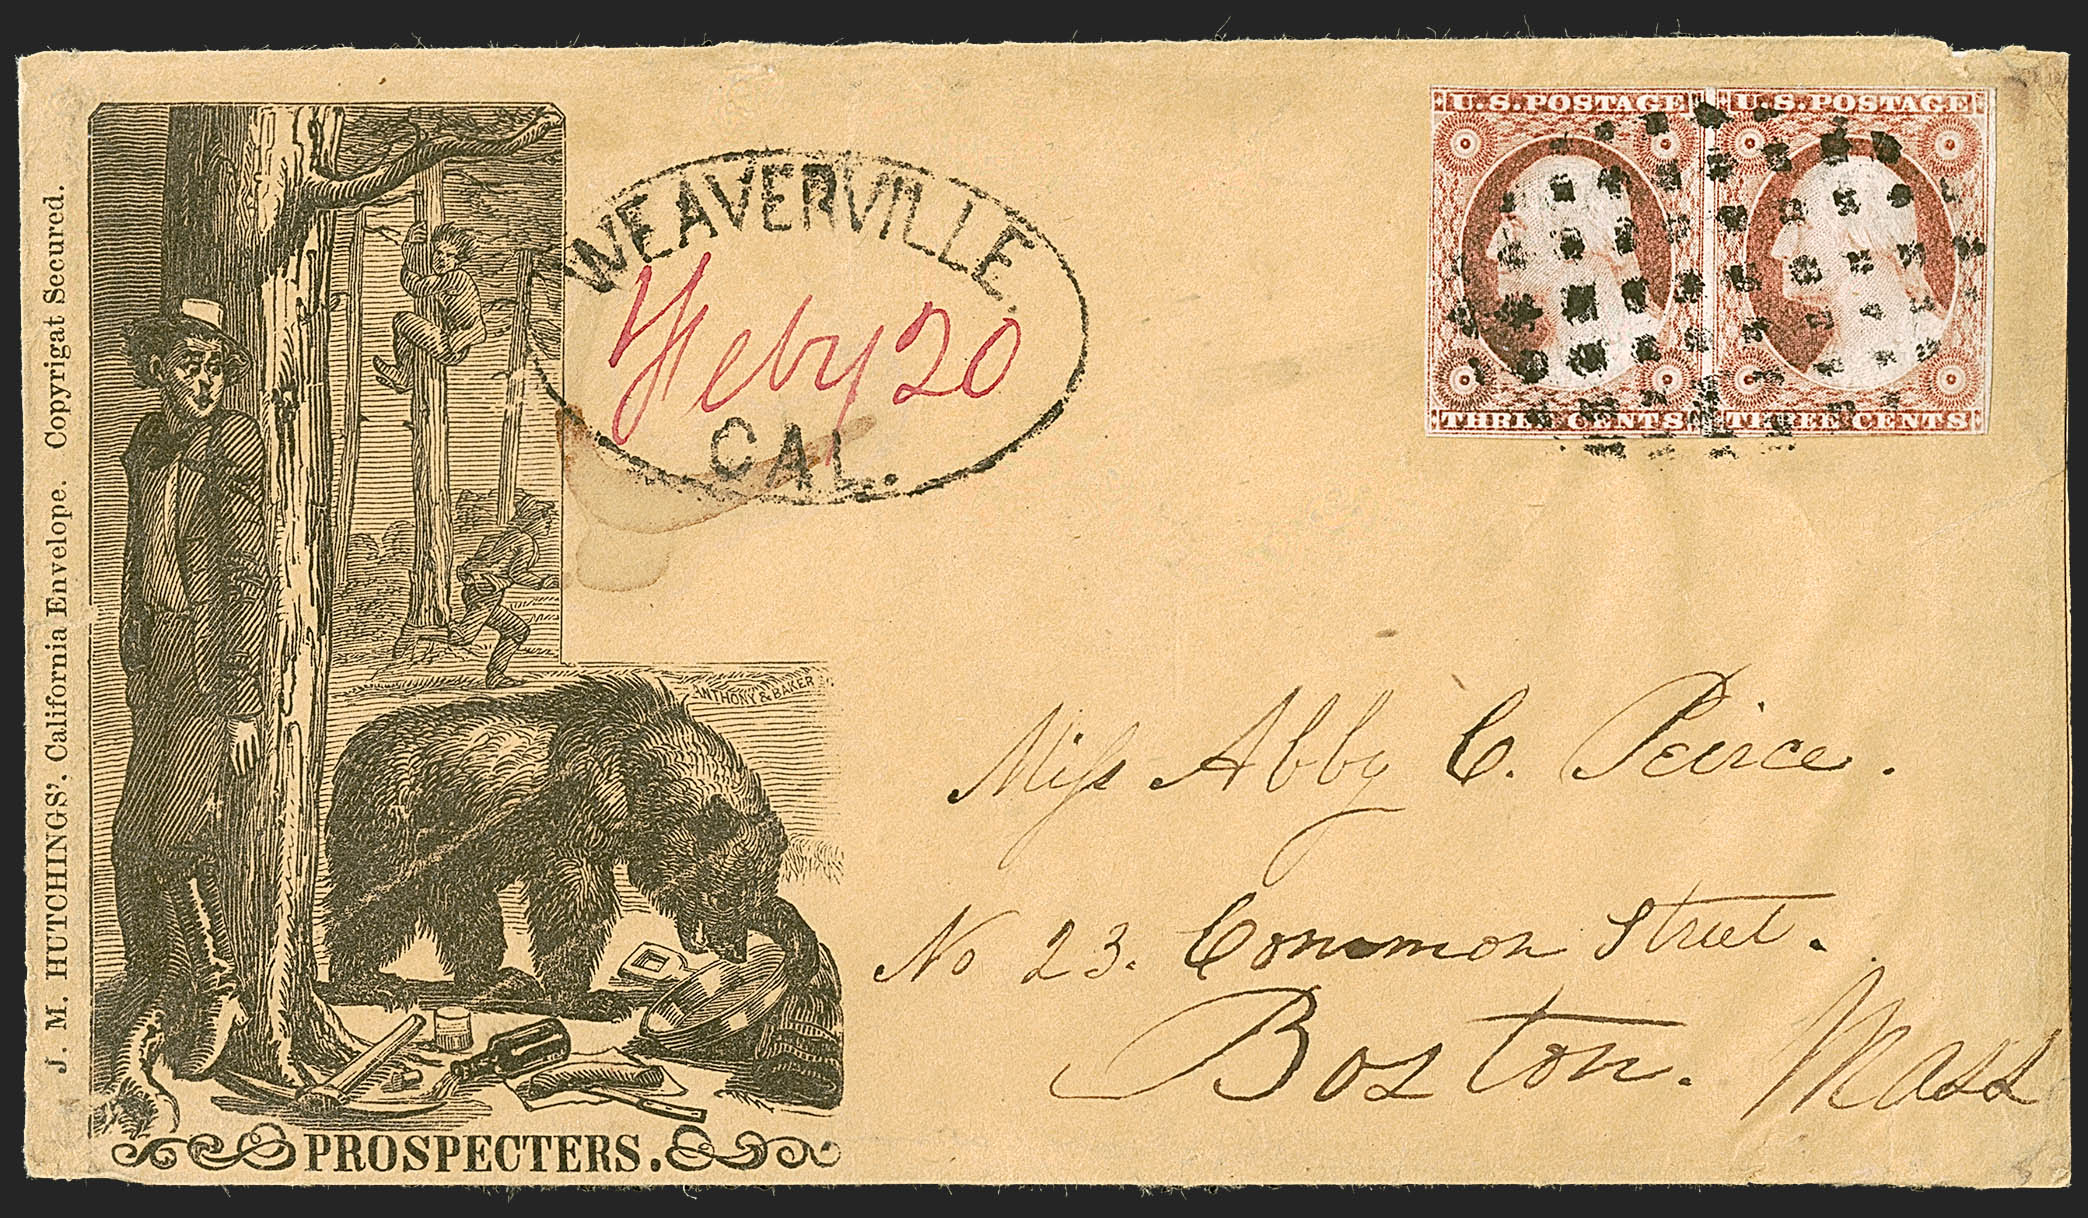 J. M. HUTCHINGS'. California Envelope. Copyrigat Secured.
WEAVERVILLE.
Feby 20
CAL.
U.S. POSTAGE
THREE CENTS
U.S. POSTAGE
THREE CENTS
ANTHONY & BAKER
PROSPECTERS.
Miss Abby C. Peirce.
No 23. Common Street.
Boston. Mass